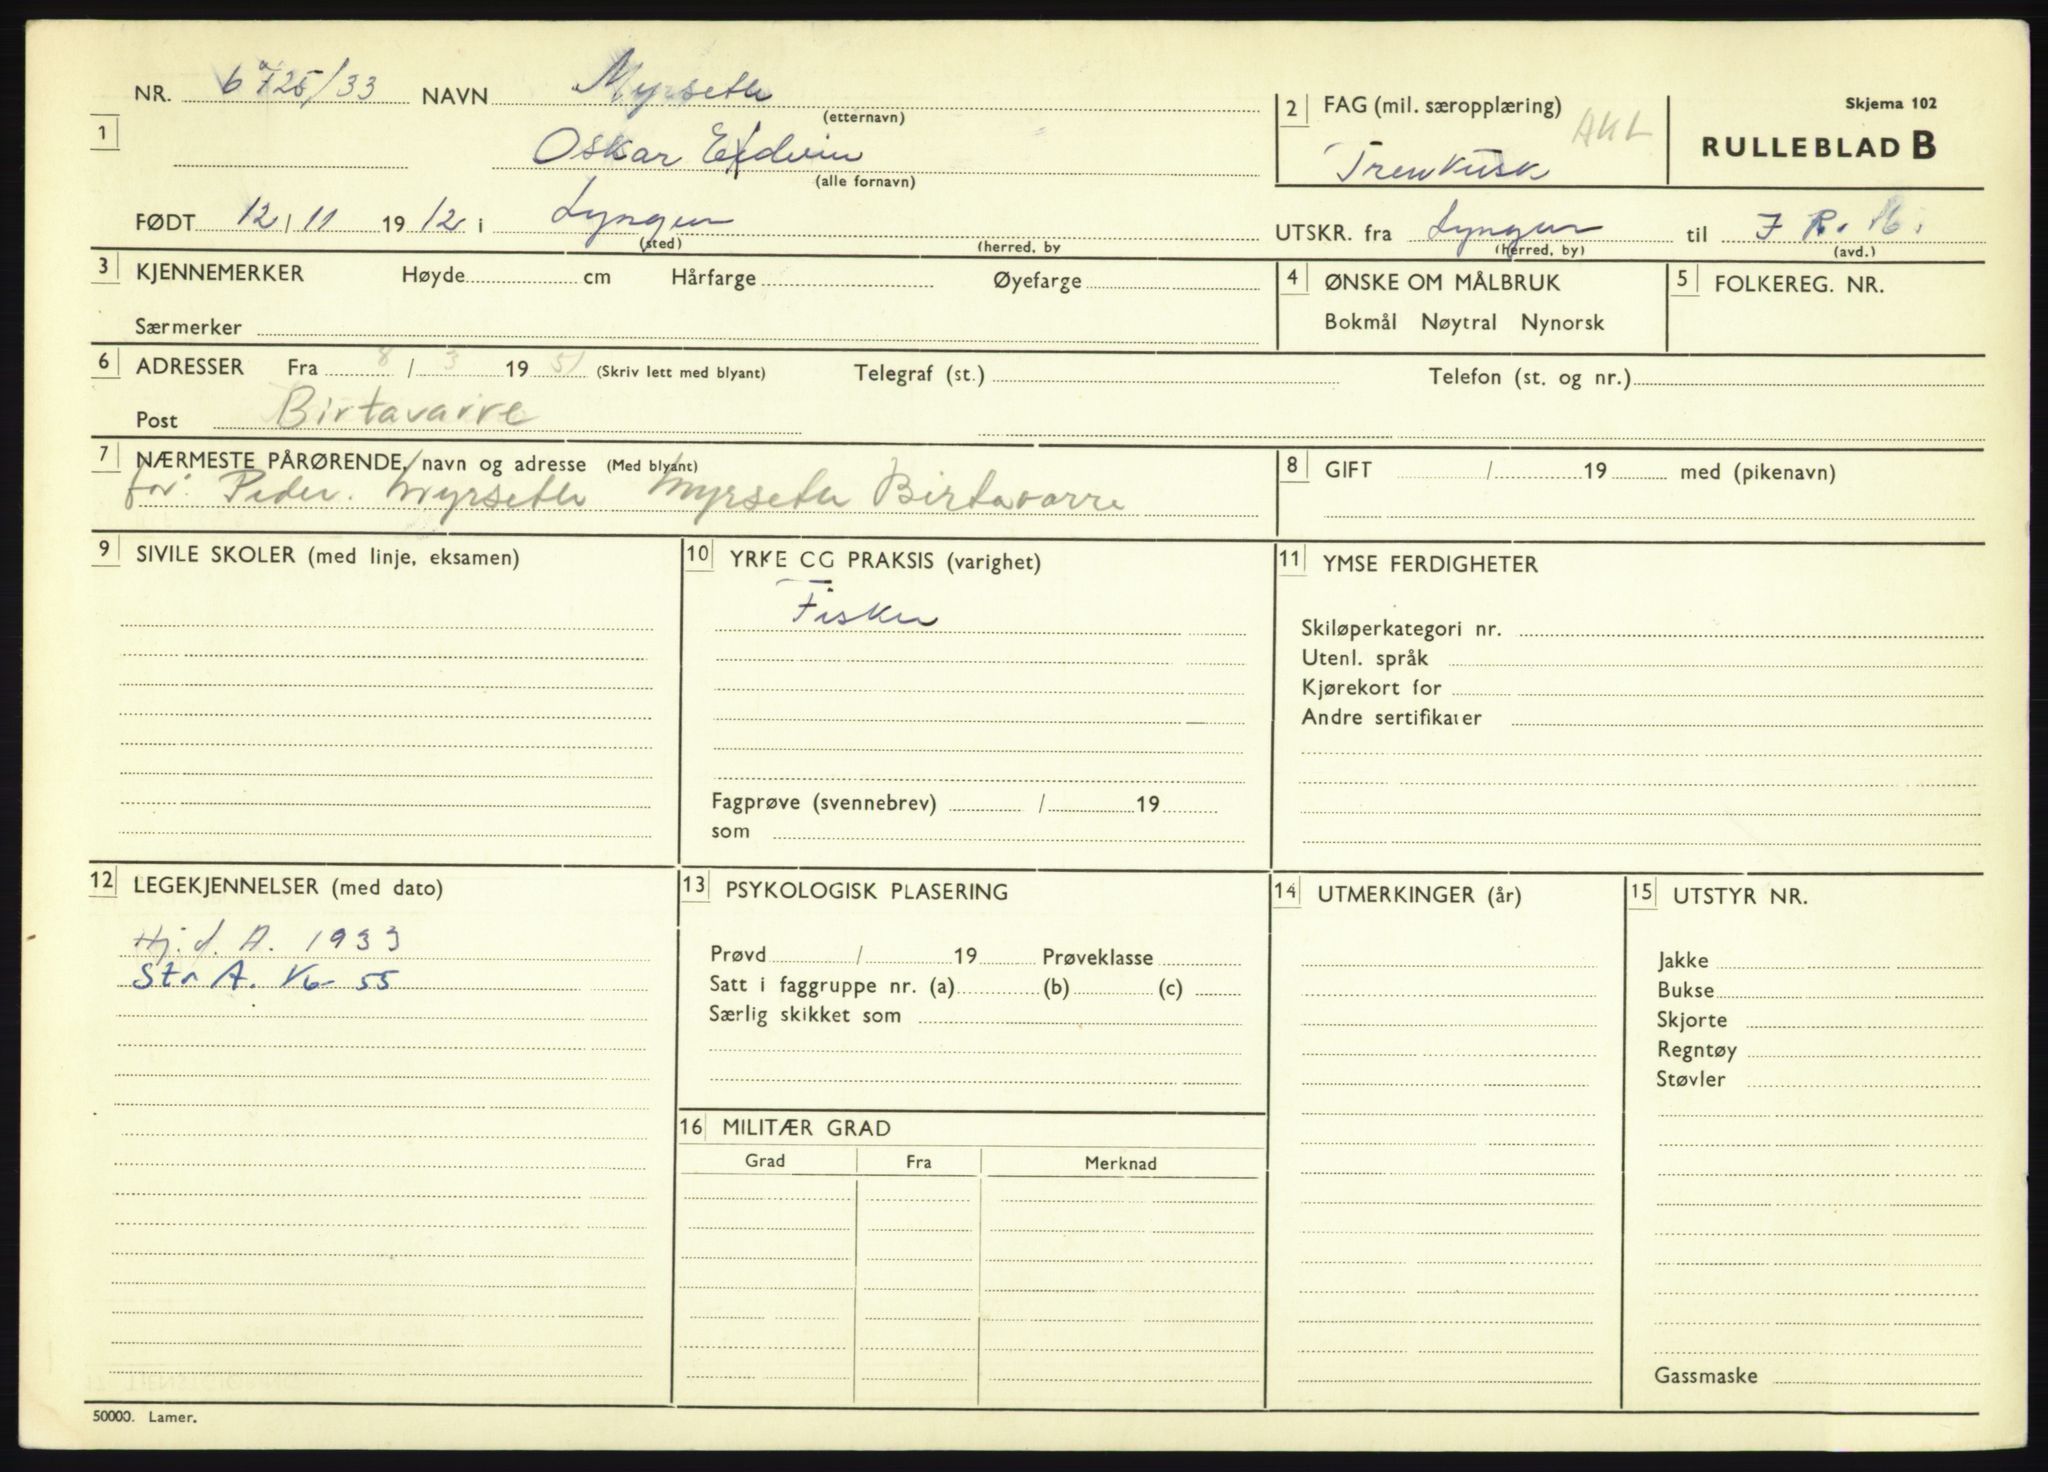 NR. 6725/33 NAVN Myrseth
(etternavn)
1
Oskar Edvin
(alle fornavn)
FØDT 12/11 1912 i Lyngen
(sted) (herred, by
2 FAG (mil. særopplæring) AKL
Trenkusk
Skjema 102
RULLEBLAD B
UTSKR. fra Lyngen til I R. 16.
(herred, by) (avd.)
3 KJENNEMERKER Høyde cm Hårfarge Øyefarge
Særmerker
4 ØNSKE OM MÅLBRUK
Bokmål Nøytral Nynorsk
5 FOLKEREG. NR.
6 ADRESSER Fra 8/3 1951 (Skriv lett med blyant) Telegraf (st.) Telefon (st. og nr.)
Post Birtavarre
7 NÆRMESTE PÅRØRENDE, navn og adresse (Med blyant)
far: Peder. Myrseth Myrseth Birtavarre
8 GIFT / 19 med (pikenavn)
9 SIVILE SKOLER (med linje, eksamen)
10 YRKE OG PRAKSIS (varighet)
Fisker
Fagprøve (svennebrev) / 19
som
11 YMSE FERDIGHETER
Skiløperkategori nr.
Utenl. språk
Kjørekort for
Andre sertifikater
12 LEGEKJENNELSER (med dato)
Hj. d. A. 1933
Str A. 1/6-55
13 PSYKOLOGISK PLASERING
Prøvd / 19 Prøveklasse
Satt i faggruppe nr. (a) (b) (c)
Særlig skikket som
14 UTMERKINGER (år)
15 UTSTYR NR.
Jakke
Bukse
Skjorte
Regntøy
Støvler
Gassmaske
16 MILITÆR GRAD
Grad Fra Merknad
50000. Lamer.